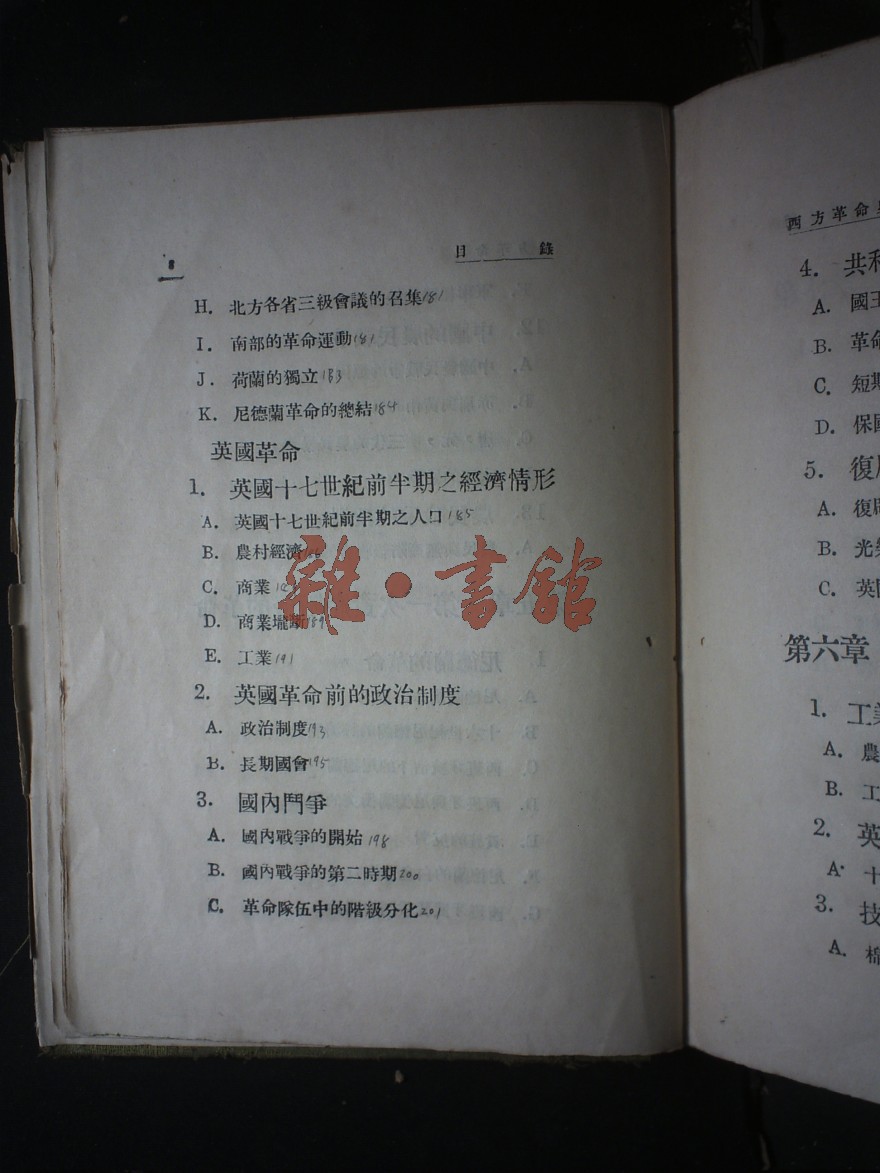 8
目錄
H. 北方各省三級會議的召集181
I. 南部的革命運動181
J. 荷蘭的獨立183
K. 尼德蘭革命的總結184
英國革命
1. 英國十七世紀前半期之經濟情形
A. 英國十七世紀前半期之人口185
B. 農村經濟
C. 商業
D. 商業壠斷189
E. 工業191
2. 英國革命前的政治制度
A. 政治制度193
B. 長期國會195
3. 國內鬥爭
A. 國內戰爭的開始198
B. 國內戰爭的第二時期200
C. 革命隊伍中的階級分化201
雜·書館
西方革命
4. 共和
A. 國王
B. 革命
C. 短期
D. 保國
5. 復
A. 復
B. 光
C. 英
第六章
1. 工業
A. 農
B. 工
2. 英
A. 十
3. 技
A. 棉